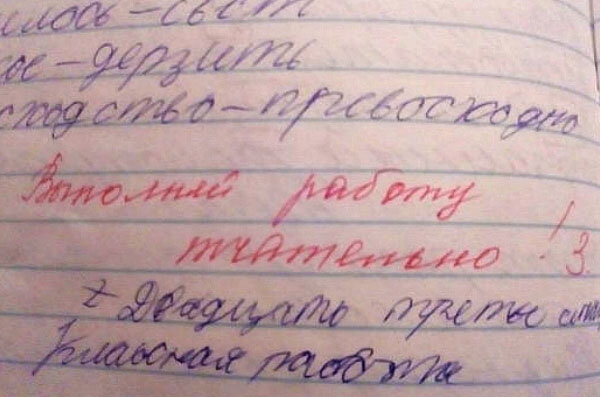 –свет
–дерзить
сходство–превосходно
Выполняй работу
тчательно! 3.
Двадцать третье
Классная работа